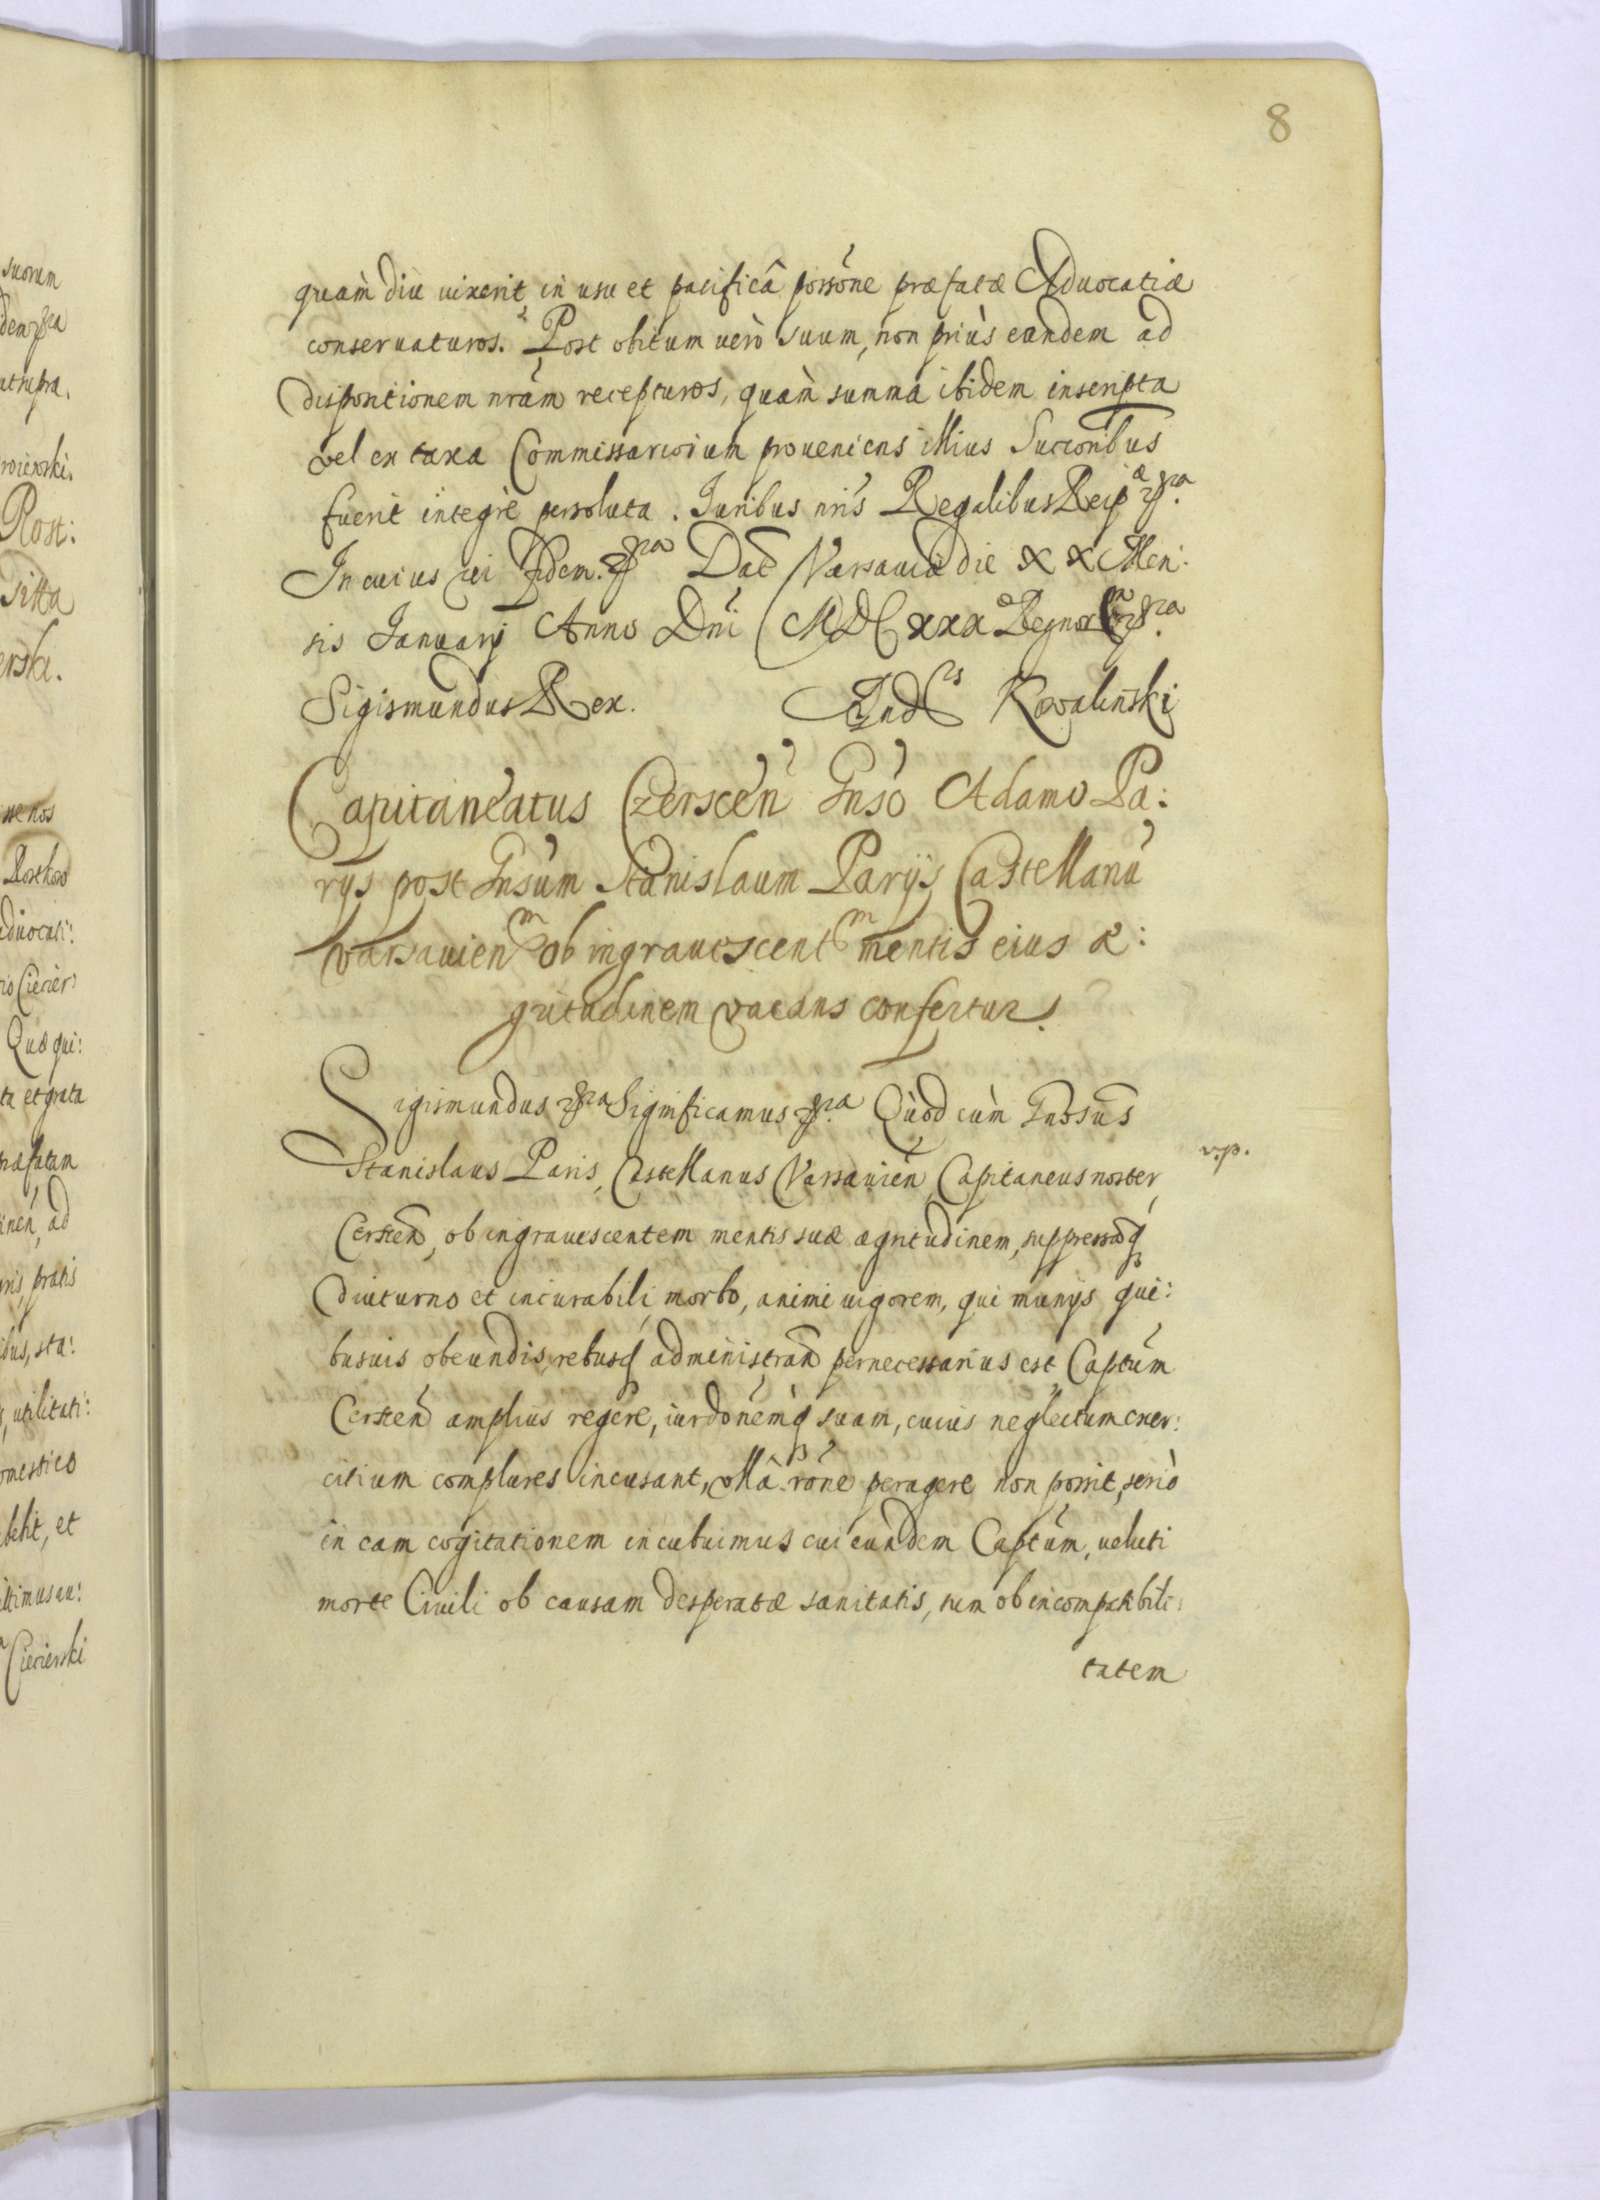 8
quàm diu uixerit in usu et pacificâ possõne præfatæ Aduocatiæ
conseruaturos. Post obitum uerò suum, non priùs eandem ad
dispositionem nrãm recepturos, quàm summa ibidem inscripta
vel ex taxa Commissariorum proueniens illius Succoribus
fuerit integrè persoluta. Iuribus nris Regalibus Reip
In cuius rei fidem. Dat Varsauiæ die XX Men:
sis Ianuarij Anno Dni MDCxxx Regnor
Sigismundus Rex. Kowalenski
Capitaneatus Czerscen Gnso Adamo Pa:
rijs post Gnsum Stanislaum Parijs Castellanũ
varsauienm ob ingrauescentm mentis eius æ:
gritudinem vacans confertur.
Sigismundus Significamus Quòd cùm Gnosus
Stanislaus Paris, Castellanus Varsauien Capitaneus noster
Cerscen, ob ingrauescentem mentis suæ ægritudinem, suppressoq
diuturno et incurabili morbo, animi uigorem, qui munijs qui:
busuis obeundis, rebusq administran pernecessarius est Captum
Cerscen amplius regere, iurdonemq suam, cuius neglectum exer:
citium complures incusant, ullâ rone peragere non possit, seriò
in eam cogitationem incubuimus cui eundem Captum, ueluti
morte Ciuili ob causam desperatæ sanitatis, tum ob incompatibili:
tatem
v.p.
suorum
utsupra.
Post:
Quæ qui:
ta et grata
ad
pratis
ibus, sta:
utilitati:
et
Ciecierski